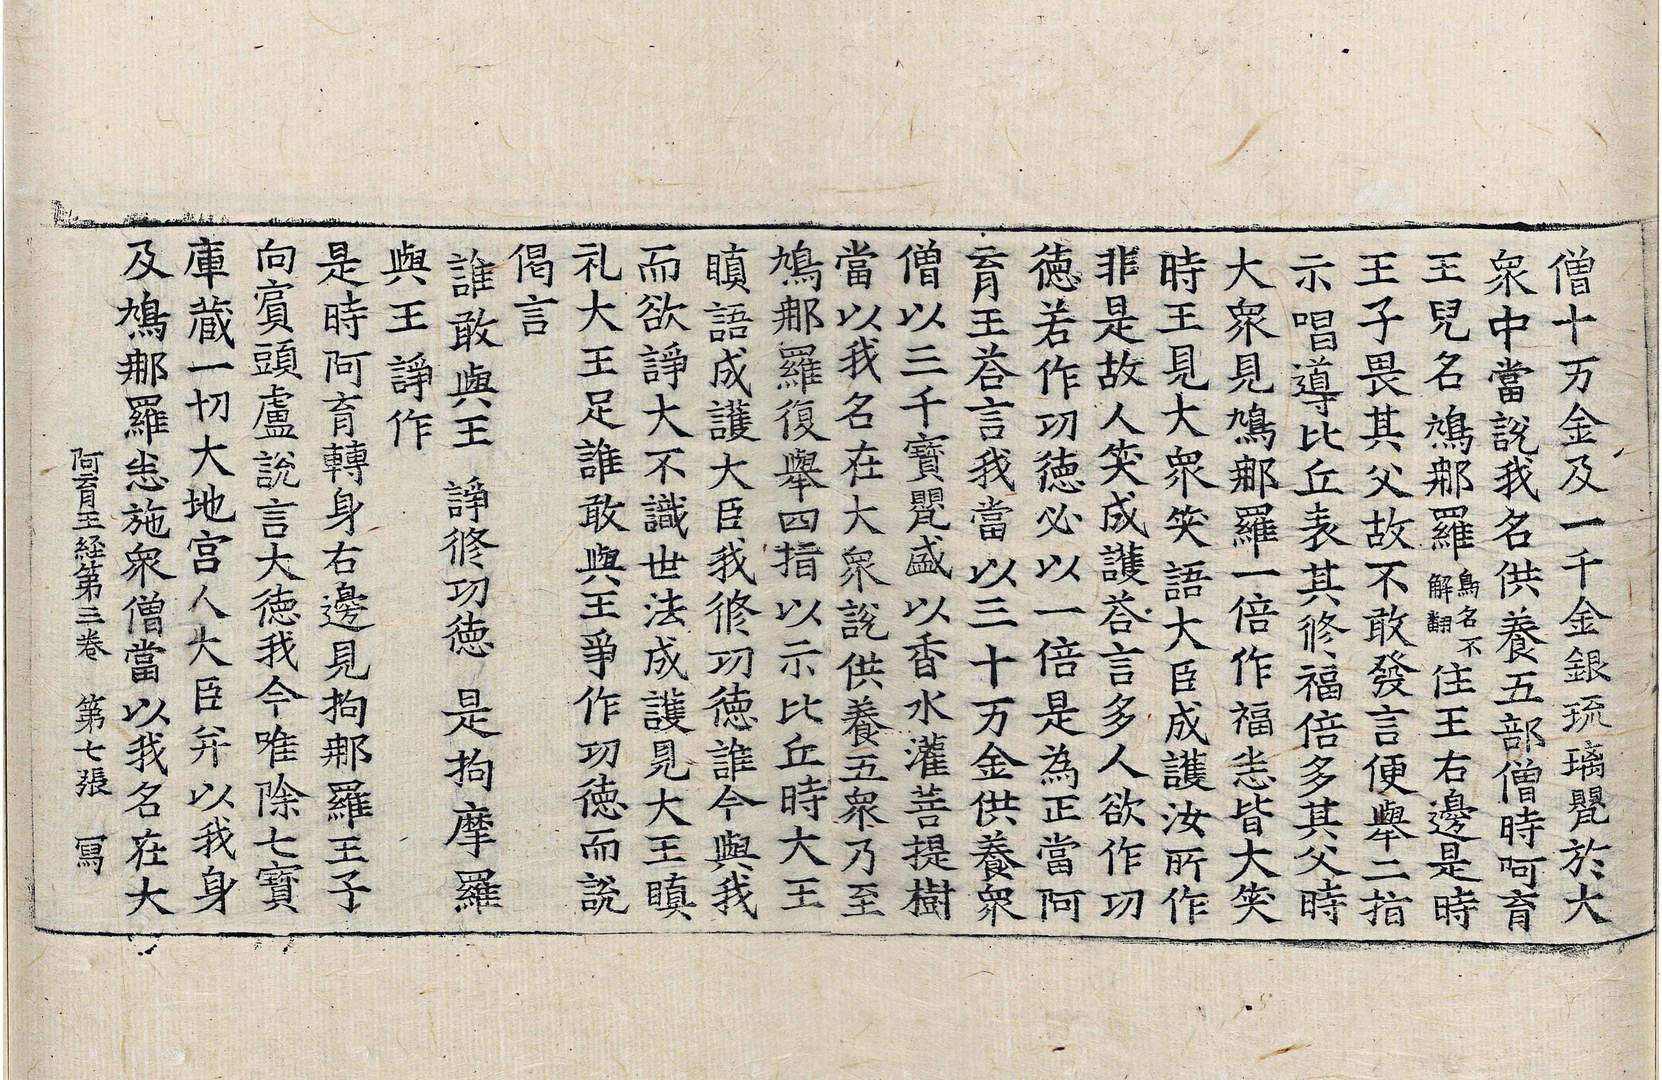 僧十万金及一千金銀琉璃甖於大
衆中當說我名供養五部僧時呵育
王兒名鳩郍羅鳥名不解翻住王右邊是時
王子畏其父故不敢發言便舉二指
示唱導比丘表其修福倍多其父時
大衆見鳩郍羅一倍作福恙皆大笑
時王見大衆笑語大臣成護汝所作
非是故人笑成護荅言多人欲作功
德若作功德必以一倍是為正當阿
育王荅言我當以三十万金供養衆
僧以三千寶甖盛以香水灌菩提樹
當以我名在大衆說供養五衆乃至
鳩郍羅復舉四指以示比丘時大王
瞋語成護大臣我修功德誰今與我
而欲諍大不識世法成護見大王瞋
礼大王足誰敢與王爭作功德而說
偈言
誰敢與王 諍修功德 是拘摩羅
與王諍作
是時阿育轉身右邊見拘郍羅王子
向賓頭盧說言大德我今唯除七寶
庫藏一切大地宫人大臣并以我身
及鳩郍羅恙施衆僧當以我名在大
阿育王経第三卷 第七張 寫